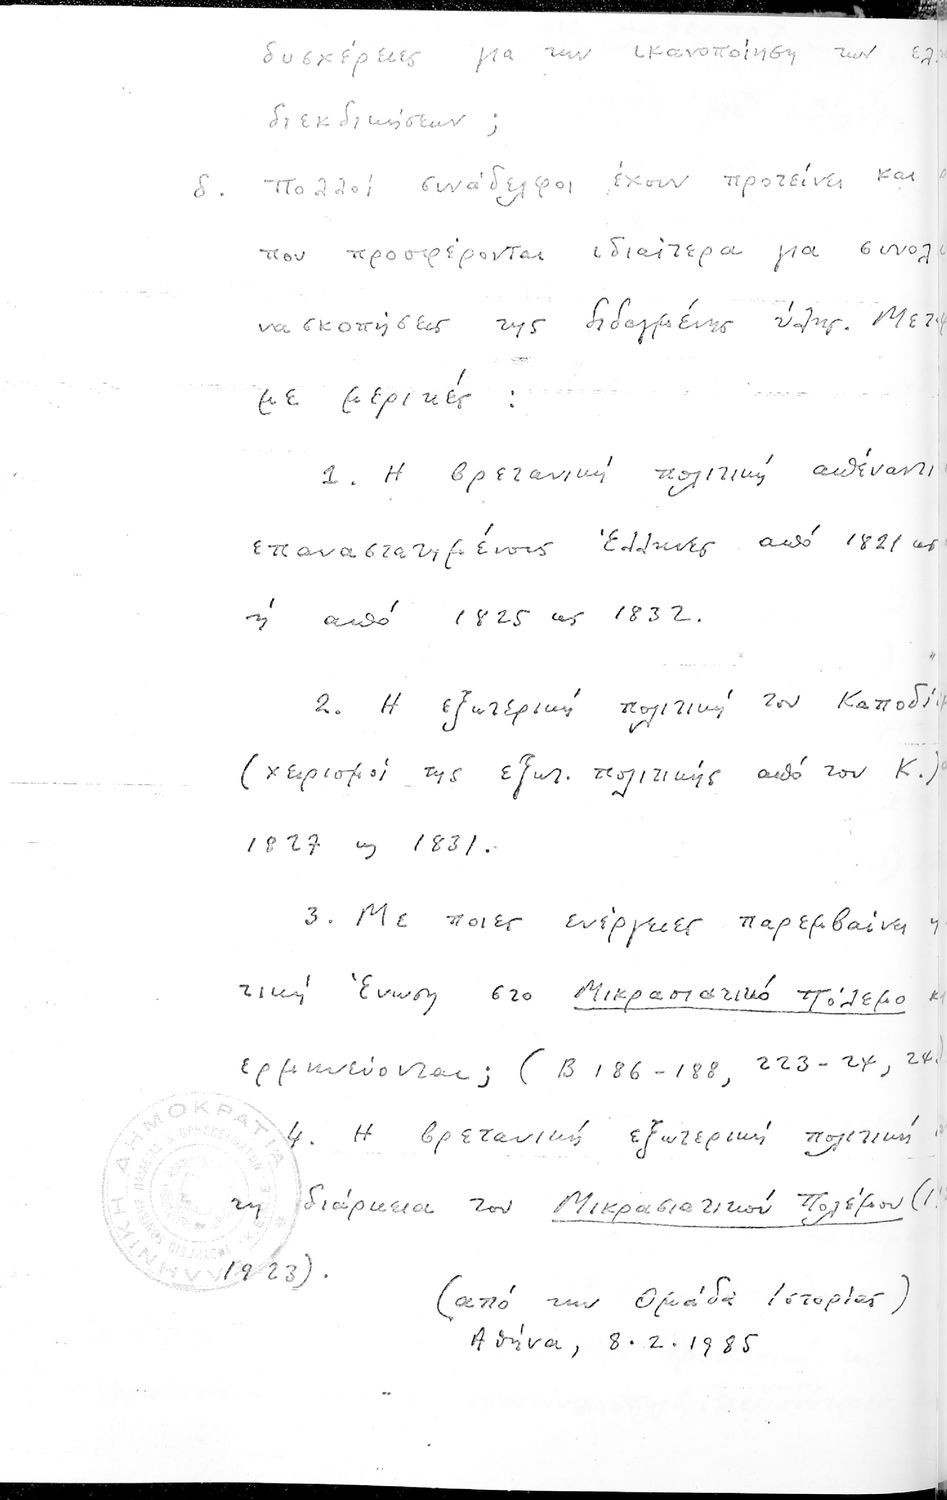 δυσχέρειες για την ικανοποίηση των ελλ
διεκδικήσεων ;
δ. Πολλοί συνάδελφοι έχουν προτείνει και
που προσφέρονται ιδιαίτερα για συνολι
νασκοπήσεις της διδαγμένης ύλης. Μετα
με μερικές :
1. Η βρετανική πολιτική απέναντι
επαναστατημένους Έλληνες από 1821 ως
ή από 1825 ως 1832.
2. Η εξωτερική πολιτική του Καποδί
(χειρισμοί της εξωτ. πολιτικής από τον Κ.)
1827 ως 1831.
3. Με ποιες ενέργειες παρεμβαίνει η
τική Ένωση στο Μικρασιατικό πόλεμο κ
ερμηνεύονται; (Β 186-188, 223-24, 24
4. Η βρετανική εξωτερική πολιτική
τη διάρκεια του Μικρασιατικού Πολέμου (1
1923).
(από την Ομάδα Ιστορίας)
Αθήνα, 8.2.1985
ΕΛΛΗΝΙΚΗ ΔΗΜΟΚΡΑΤΙΑ